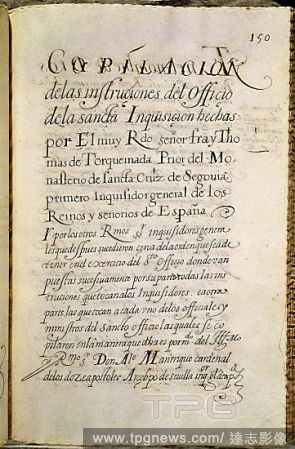 150
COPILACION
delas instruciones del Officio
dela sancta Inquisicion hechas
por El muy Rdo señor fray Tho
mas de Torquemada Prior del Mo
nasterio de sancta Cruz de Segouia
primero Inquisidor general de los
Reinos y señorios de España
Y por los otros Rmos inquisidores genera
les que despues sucedieron cerca dela orden que se a de
tener en el exercicio del sto officio donde van
puestas sucesiuamente por su parte todas las ins
truciones que tocan alos Inquisidores e a otra
parte las que tocan a cada vno delos officiales y
ministros del Sancto officio las quales se co
pilaren en la manera que dha es por mdo del Illmo
Rmo Sr Don Alo Manrrique cardenal
delos doze apostoles Arcobpo de seuilla
TPG
www.tpgnews.com / 達志影像